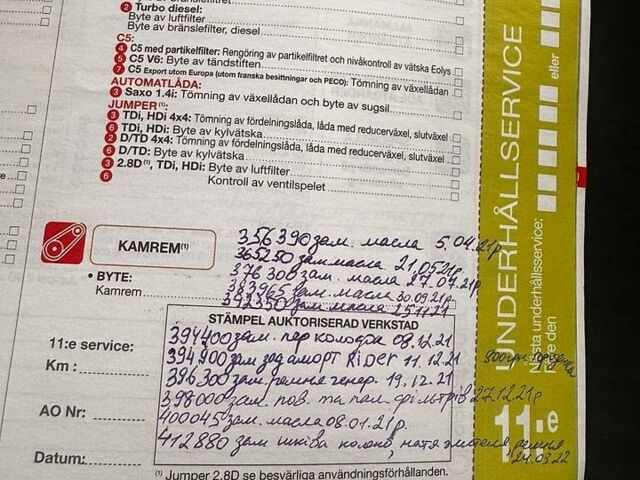 ② Turbo diesel:
Byte av luftfilter
Byte av bränslefilter, diesel
C5:
④ C5 med partikelfilter: Rengöring av partikelfiltret och nivåkontroll av vätska Eolys
⑤ C5 V6: Byte av tändstiften
⑦ C5 Export utom Europa (utom franska besittningar och PECO): Tömning av växellådan
AUTOMATLÅDA:
③ Saxo 1.4i: Tömning av växellådan och byte av sugsil
JUMPER(1):
③ TDi, HDi 4x4: Tömning av fördelningslåda, låda med reducerväxel, slutväxel
⑥ TDi, HDi: Byte av kylvätska
② D/TD 4x4: Tömning av fördelningslåda, låda med reducerväxel, slutväxel
⑥ D/TD: Byte av kylvätska
③ 2.8D (1), TDi, HDi: Byte av luftfilter
⑥ Kontroll av ventilspelet
KAMREM(1)
• BYTE:
Kamrem
356390 зам. масла 5.04.21р
365250 зам. масла 21.05.21р.
376300 зам. масла 27.07.21р
383965 зам. масла 30.09.21р.
392350 зам масла 25.11.21
STÄMPEL AUKTORISERAD VERKSTAD
11:e service:
Km :
AO Nr:
Datum:
394400 зам. пер колодки 08.12.21
394900 зам зад аморт Rider 11.12.21
396300 зам ременя генер. 19.12.21
398000 зам. пов. та пал. фільтрів 27.12.21р
400045 зам. масла 08.01.21р.
412880 зам шківа колінв, натяжителя, ременя
24.03.22
(1) Jumper 2.8D se besvärliga användningsförhållanden.
UNDERHÅLLSERVICE
11:e
Nästa underhållsservice:
eller